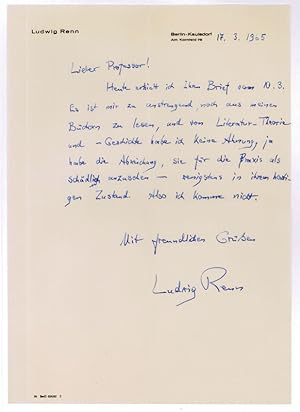 Ludwig Renn
Berlin-Kaulsdorf
Am Kornfeld 78
17. 3. 1965
Lieber Professor!
Heute erhielt ich Ihren Brief vom 10.3.
Es ist mir zu anstrengend noch aus meinen
Büchern zu lesen, und von Literatur-Theorie
und -Geschichte habe ich keine Ahnung, ja
habe die Abneigung, sie für die Praxis als
schädlich anzusehen – wenigstens in ihrem heuti-
gen Zustand. Also ich komme nicht.
Mit freundlichen Grüßen
Ludwig Renn